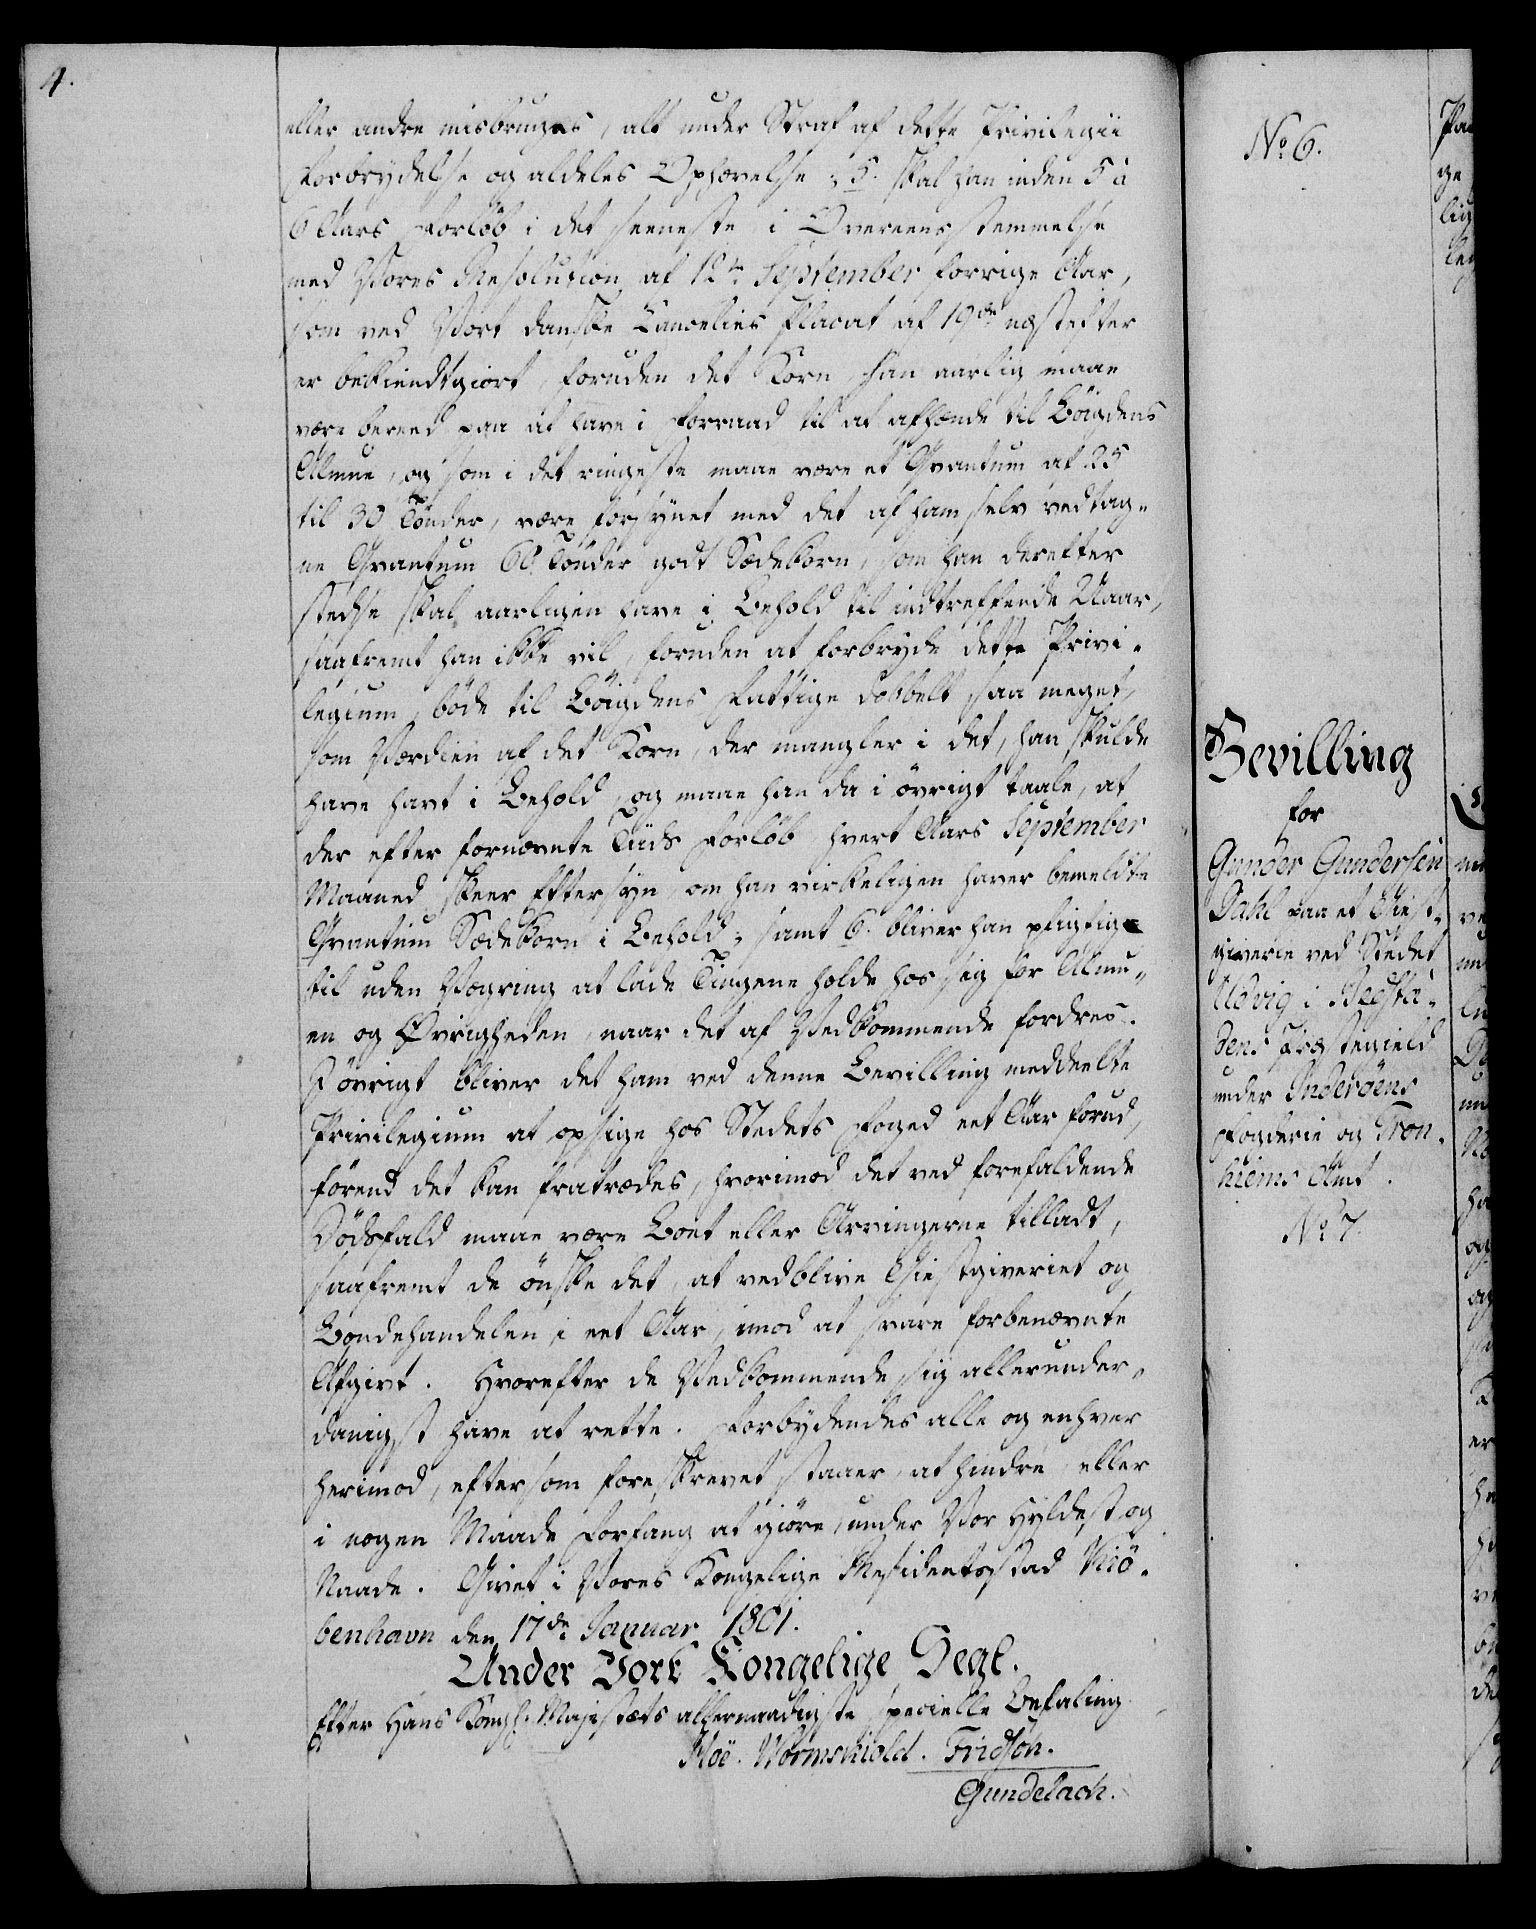 4.
eller andre misbruges, alt under Straf af dette Privilegii
Forbrydelse og aldeles Ophævelse; 5. skal han inden 5 à
6 Aars Forløb i det seeneste i Overeensstemmelse
med Vores Resolution af 12te September forrige Aar,
som ved Vort danske Cancelies Placat af 19de næstefter
er bekiendtgiort, foruden det Korn han aarlig maae
være bereed paa at have i Forraad til at afhænde til Böigdens
Almue, og som i det ringeste maae være et Qvantum af 25
til 30 Tönder, være forsÿnet med det af ham selv vedtag-
ne Qvantum 60 Tönder godt Sædekorn, som han derefter
stedse skal aarligen have i Behold til indtreffende Uaar,
saafremt han ikke vil, foruden at forbryde dette Privi-
legium, böde til Böigdens Fattige dobbelt saa meget,
som Værdien af det Korn, der mangler i det, han skulde
have havt i Behold, og maae han da i övrigt taale, at
der efter fornævnte Tiids Forløb hvert Aars September
Maaned skeer Eftersyn om han virkeligen haver bemeldte
Qvantum Sædekorn i Behold; samt 6. bliver han pligtig
til uden Vægring at lade Tingene holde hos sig for Almu-
en og Øvrigheden, naar det af Vedkommende fordres.
I övrigt bliver det ham ved denne Bevilling meddeelte
Privilegium at opsige hos Stedets Foged eet Aar forud,
förend det kan fratrædes, hvorimod det ved forefaldende
Dödsfald maae være Boet eller Arvingerne tilladt,
saafremt de önske det, at vedblive Giestgiveriet og
Bondehandelen i eet Aar, imod at svare forbenævnte
Afgivt. Hvorefter de Vedkommende sig allerunder-
danigst have at rette. Forbydendes alle og enhver
herimod, eftersom foreskrevet staaer, at hindre, eller
i nogen Maade Forfang at giöre, under Vor Hyldest og
Naade. Givet i Vores Kongelige Residentsstad Kiö-
benhavn den 17de Januar 1801.
Under Vort Kongelige Segl.
Efter Hans Kongl: Majestæts allernaadigste specielle Befaling
Moe. Wormskiold. Fridsön.
Gundelach.
No 6.
Bevilling
for
Gunder Gundersen
Dahl paa et Giest-
giverie ved Stedet
i
dens Præstegield
under Inderöens
Fogderie og Tron-
hiems Amt.
No 7.